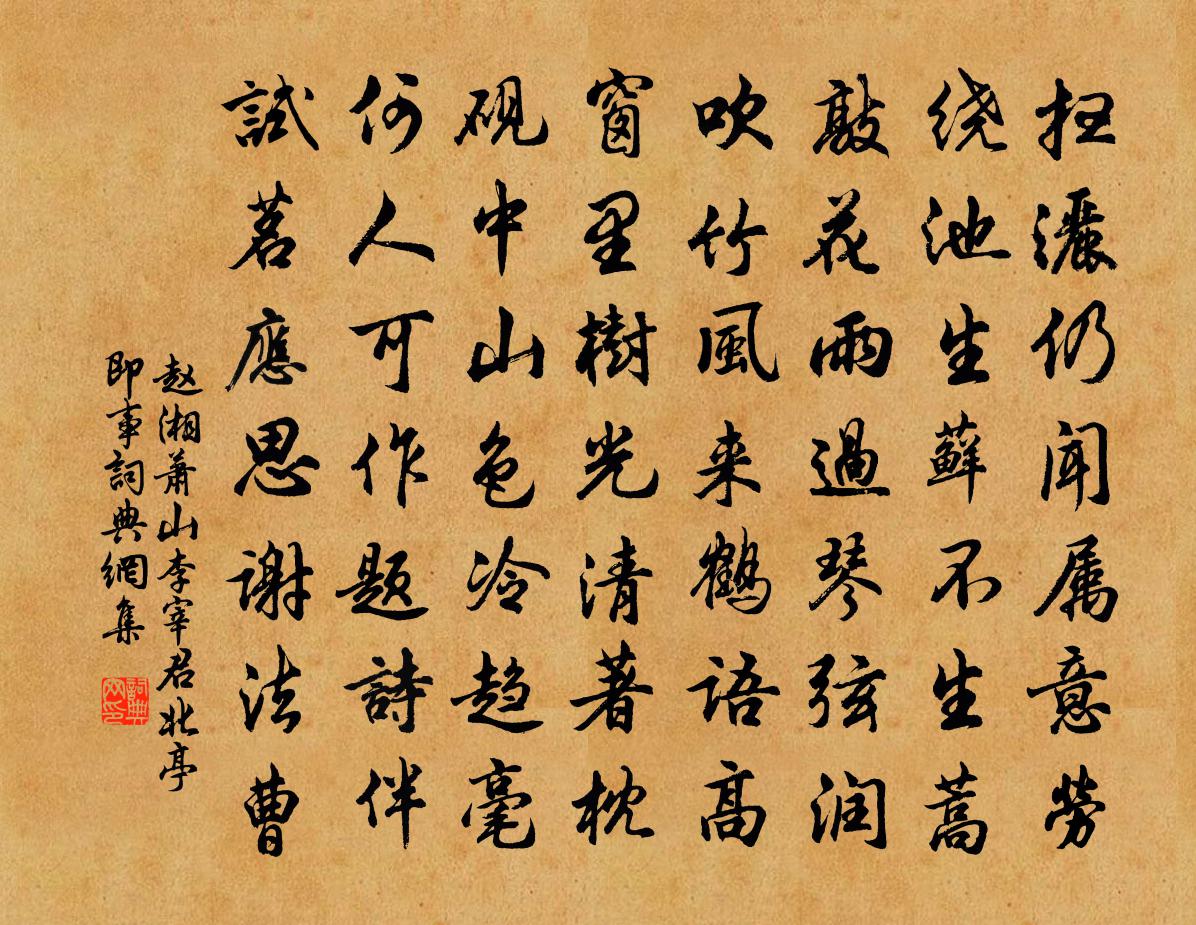 扫灑仍闻属意劳
绕池生藓不生蒿
敲花雨過琴弦润
吹竹風来鹤语高
窗里樹光清著枕
砚中山色冷趋毫
何人可作题詩伴
試茗應思谢法曹
赵湘萧山李宰君北亭
即事詞典網集
詞典网印